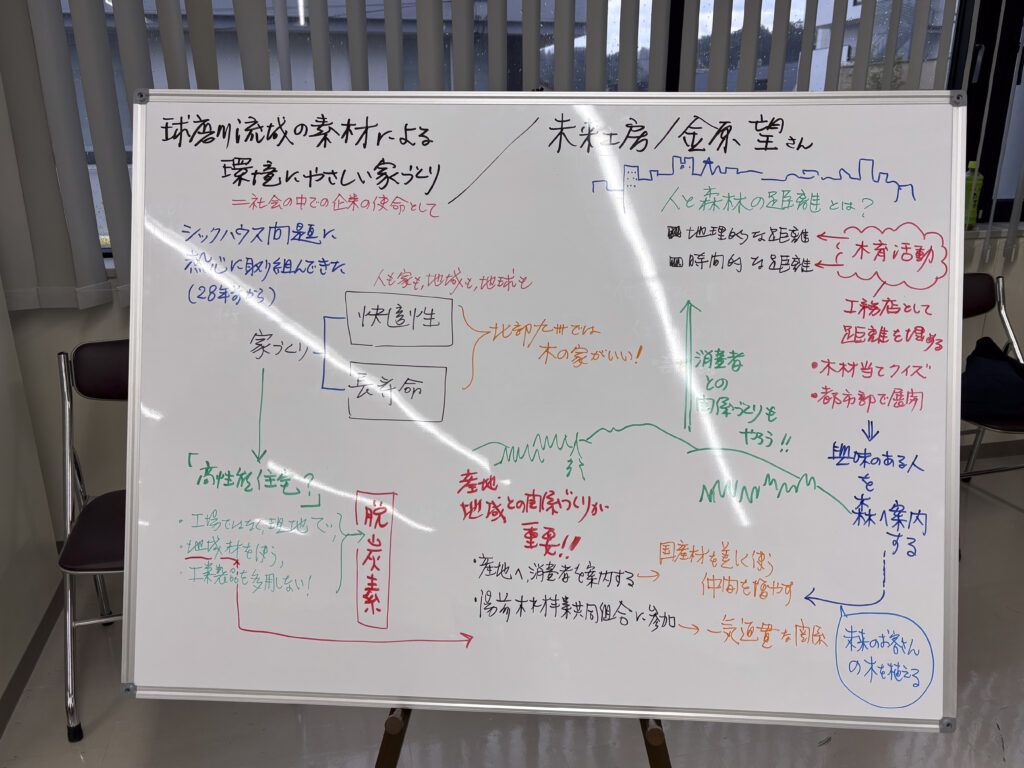 球磨川流域の素材による
環境にやさしい家づくり
=社会の中での企業の使命として
未来工房/金原 望さん
シックハウス問題に
熱心に取り組んできた
(28年前から)
人も家も,地域も,地球も
家づくり
快適性
長寿命
北部九州では
木の家がいい!
「高性能住宅?」
・工場ではなく,現地で,
・地域材を使う,
・工業製品を多用しない!
脱炭素
人と森林の距離とは?
地理的な距離
時間的な距離
木育活動
工務店として
距離を埋める
・木材当てクイズ
・都市部で展開
興味のある人
を
森へ案内
する
消費者
との
関係づくりも
やろう!!
産地
地域との関係づくりが
重要!!
・産地へ消費者を案内する→
国産材を差しく使う
仲間を増やす
・陽前木材林業共同組合に参加→一気通貫な関係
未来のお客さん
の木を植える